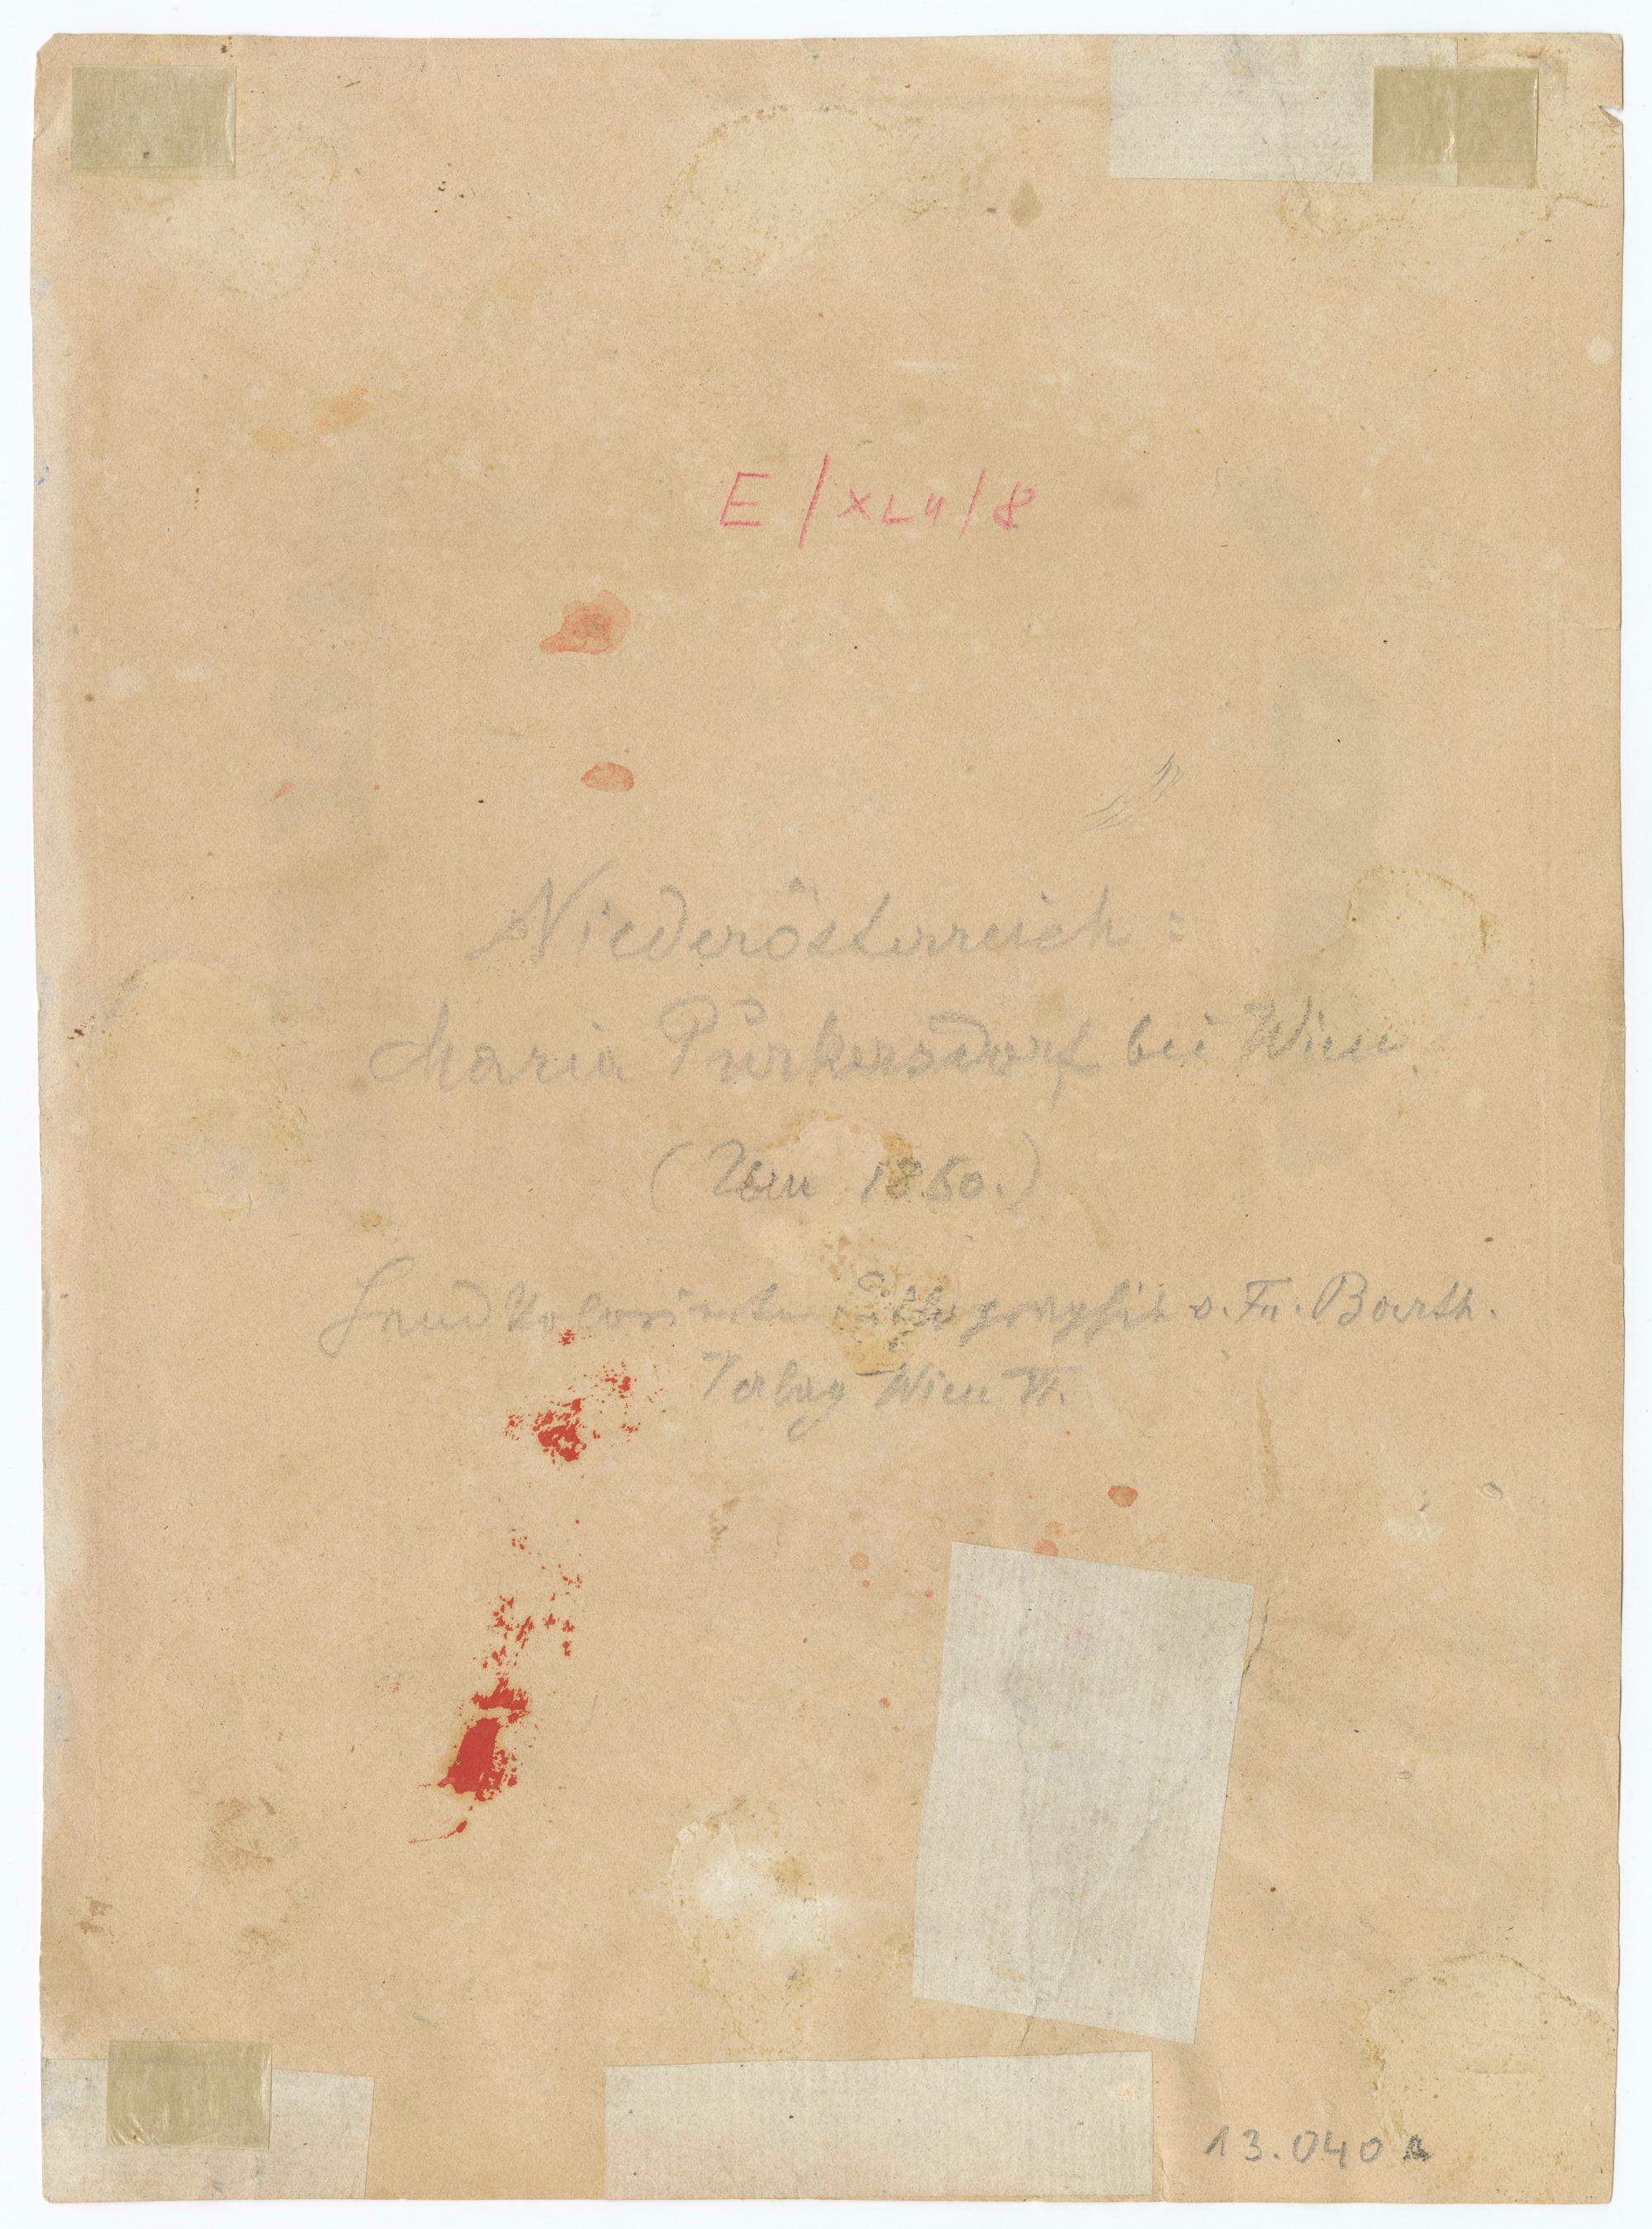 E/XLII/8
Niederösterreich:
Maria Purkersdorf bei Wien
(Um 1860.)
Handkolorierte Lithographie v. Fr. Barth.
Verlag Wien VI.
13.040